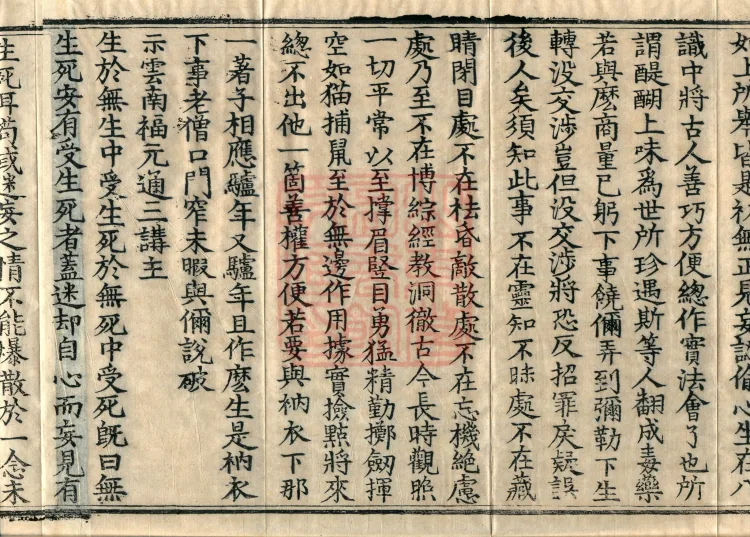 如上所舉皆是初無正見妄認偷心坐在八
識中將古人善巧方便總作實法會了也所
謂醍醐上味爲世所珍遇斯等人翻成毒藥
若與麽商量已躬下事饒儞弄到彌勒下生
轉没交涉豈但没交涉將恐反招罪戾疑誤
後人矣須知此事不在靈知不昧處不在藏
睛閉目處不在袪昏敵散處不在忘機絶慮
處乃至不在博綜經教洞徹古今長時觀照
一切平常以至撑眉竪目勇猛精勤擲劔揮
空如猫捕鼠至於無邊作用據實撿點將來
總不出他一箇善權方便若要與衲衣下那
一著子相應驢年又驢年且作麽生是衲衣
下事老僧口門窄未暇與儞說破
示雲南福元通三講主
生於無生中受生死於無死中受死旣曰無
生死安有受生死者蓋迷却自心而妄見有
生死耳苟或迷妄之情不能爆散於一念未